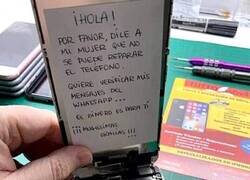 ¡HOLA!
POR FAVOR, DILE A
MI MUJER QUE NO
SE PUEDE REPARAR
EL TELÉFONO.
QUIERE VERIFICAR MIS
MENSAJES DEL
WHATSAPP...
EL DINERO ES PARA TÍ
¡¡¡MUCHÍSIMAS
GRACIAS!!!